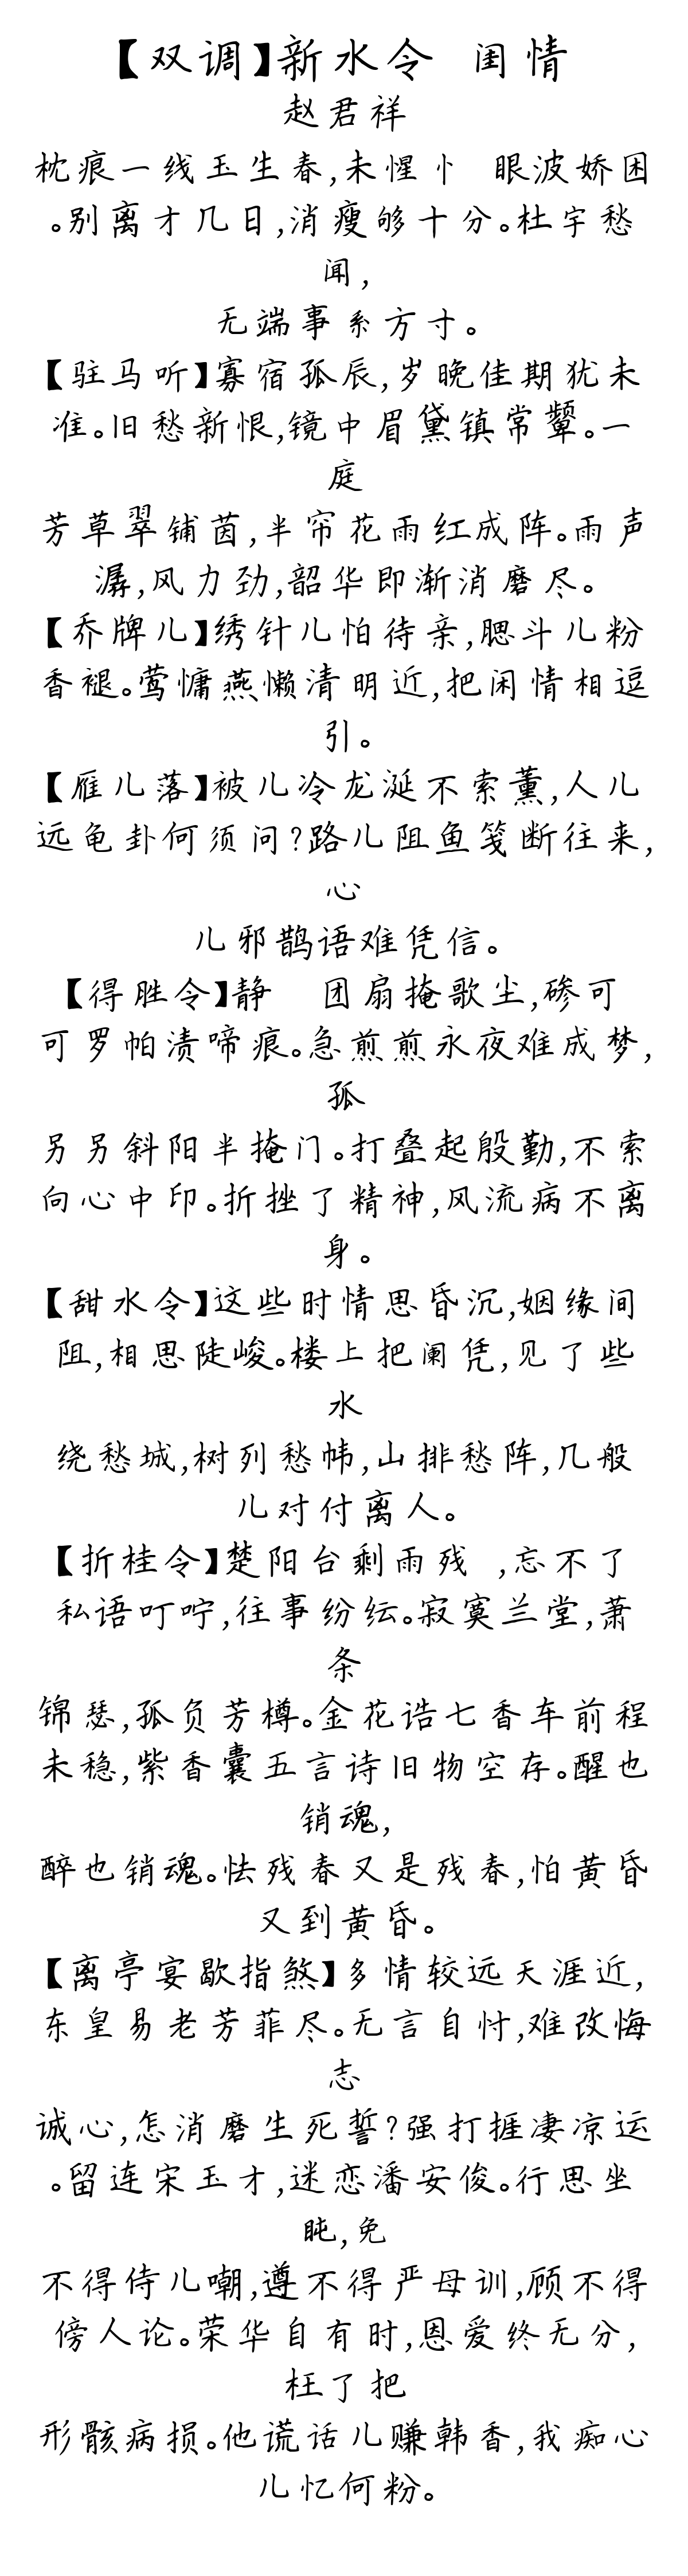 【双调】新水令 闺情
赵君祥
枕痕一线玉生春,未惺忄 眼波娇困
。别离才几日,消瘦够十分。杜宇愁
闻,
无端事系方寸。
【驻马听】寡宿孤辰,岁晚佳期犹未
准。旧愁新恨,镜中眉黛镇常颦。一
庭
芳草翠铺茵,半帘花雨红成阵。雨声
潺,风力劲,韶华即渐消磨尽。
【乔牌儿】绣针儿怕待亲,腮斗儿粉
香褪。莺慵燕懒清明近,把闲情相逗
引。
【雁儿落】被儿冷龙涎不索薰,人儿
远龟卦何须问?路儿阻鱼笺断往来,
心
儿邪鹊语难凭信。
【得胜令】静 团扇掩歌尘,碜可
可罗帕渍啼痕。急煎煎永夜难成梦,
孤
另另斜阳半掩门。打叠起殷勤,不索
向心中印。折挫了精神,风流病不离
身。
【甜水令】这些时情思昏沉,姻缘间
阻,相思陡峻。楼上把阑凭,见了些
水
绕愁城,树列愁帏,山排愁阵,几般
儿对付离人。
【折桂令】楚阳台剩雨残 ,忘不了
私语叮咛,往事纷纭。寂寞兰堂,萧
条
锦瑟,孤负芳樽。金花诰七香车前程
未稳,紫香囊五言诗旧物空存。醒也
销魂,
醉也销魂。怯残春又是残春,怕黄昏
又到黄昏。
【离亭宴歇指煞】多情较远天涯近,
东皇易老芳菲尽。无言自忖,难改悔
志
诚心,怎消磨生死誓?强打捱凄凉运
。留连宋玉才,迷恋潘安俊。行思坐
盹,免
不得侍儿嘲,遵不得严母训,顾不得
傍人论。荣华自有时,恩爱终无分,
枉了把
形骸病损。他谎话儿赚韩香,我痴心
儿忆何粉。